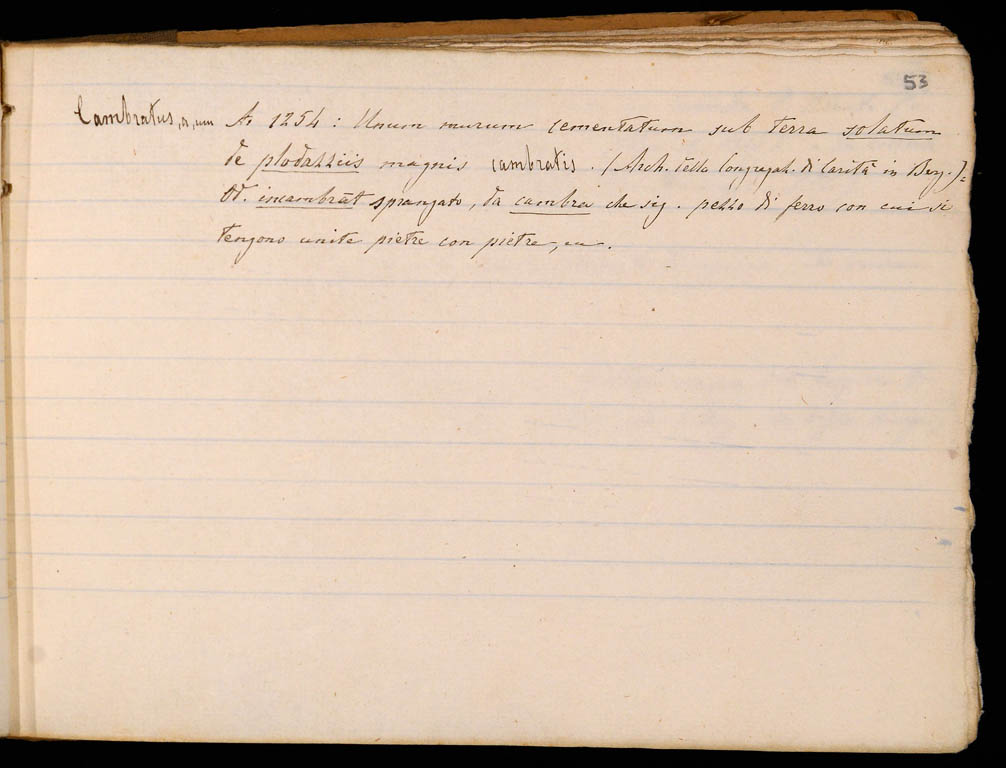 53
Cambratus, a, um A. 1254 : Unum murum cementatum sub terra solatum
de plodazziis magnis cambratis. (Arch. della Congregaz. di Carità in Berg.) =
D. incambrāt sprangato, da cambra che sig. pezzo di ferro con cui si
tengono unite pietre con pietre,